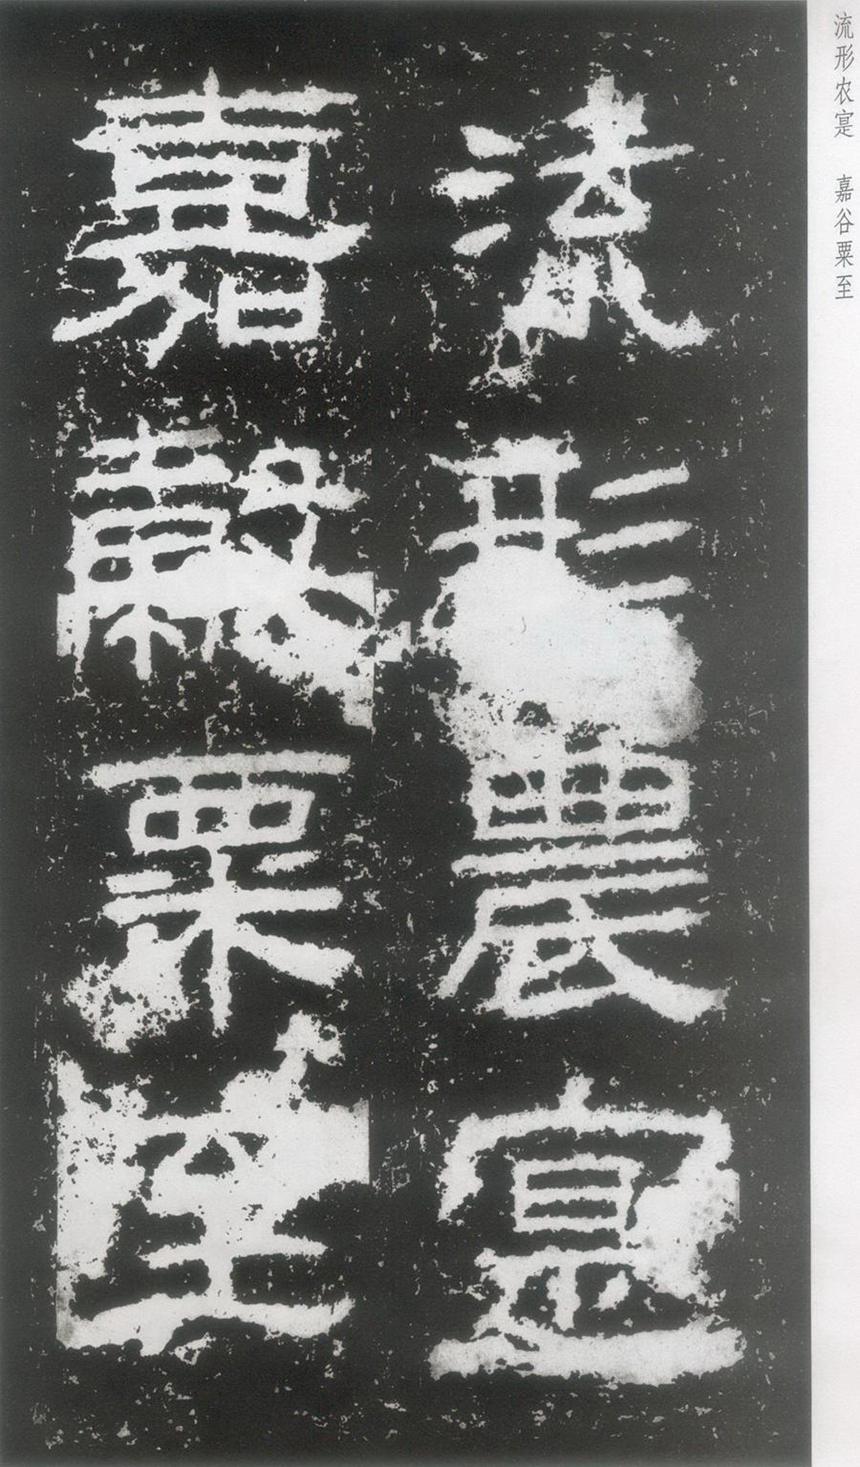 流形农寔 嘉谷粟至
流形農寔
嘉穀粟至